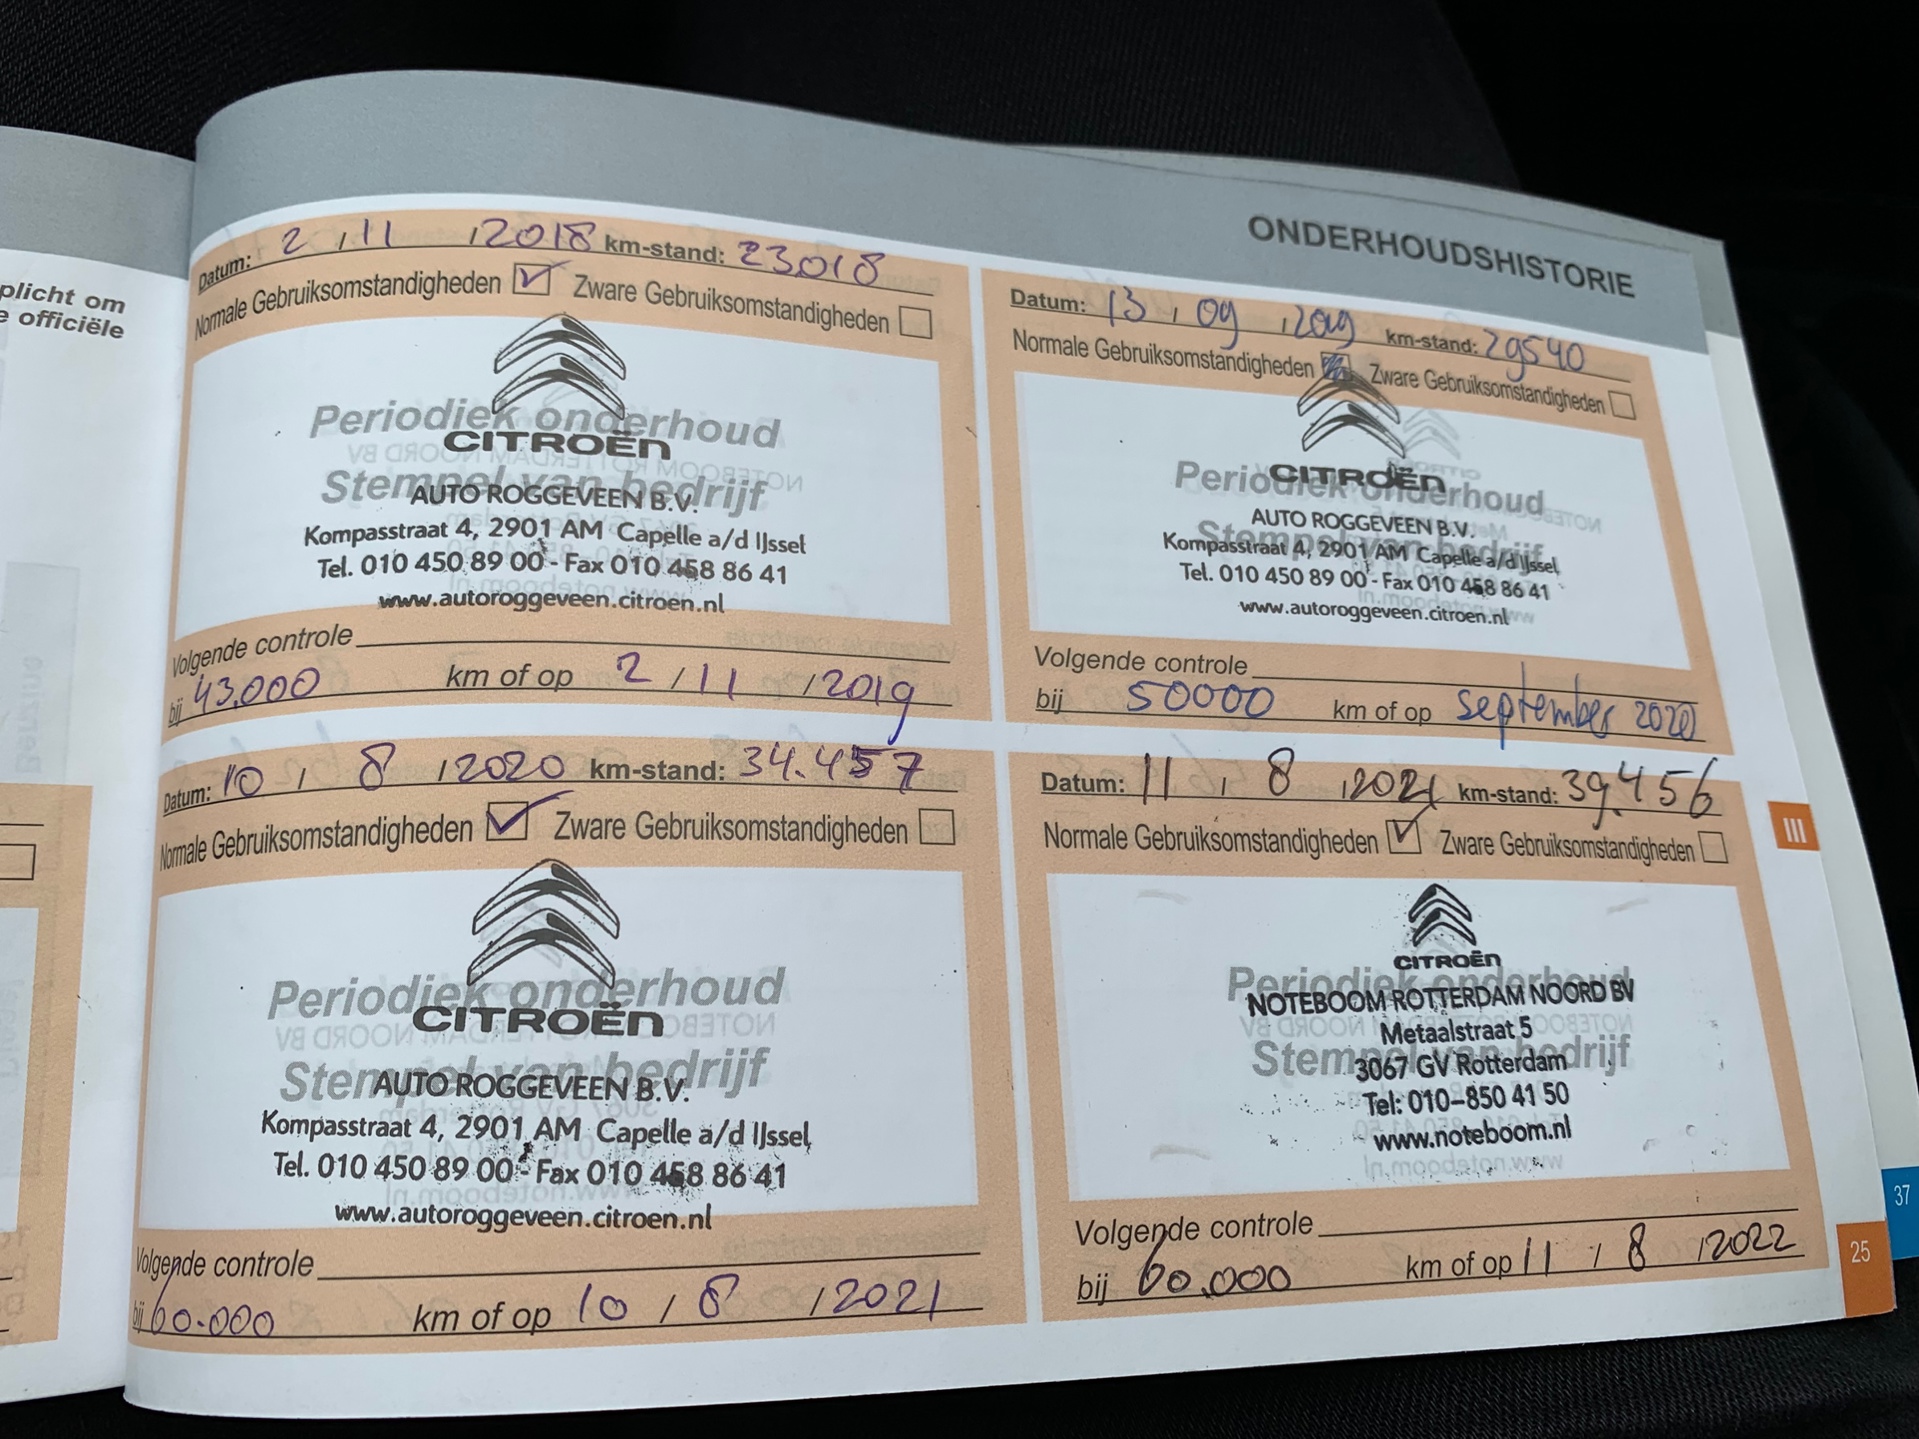 plicht om
e officiële
ONDERHOUDSHISTORIE
Datum: 2 / 11 / 2018 km-stand: 23018
Normale Gebruiksomstandigheden Zware Gebruiksomstandigheden
Periodiek onderhoud
CITROËN
Stempel van bedrijf
AUTO ROGGEVEEN B.V.
Kompasstraat 4, 2901 AM Capelle a/d IJssel
Tel. 010 450 89 00 - Fax 010 458 86 41
www.autoroggeveen.citroen.nl
Volgende controle
bij 43.000 km of op 2 / 11 / 2019
Datum: 13 / 09 / 2019 km-stand: 29540
Normale Gebruiksomstandigheden Zware Gebruiksomstandigheden
CITROËN
Periodiek onderhoud
AUTO ROGGEVEEN B.V.
Stempel van bedrijf
Kompasstraat 4, 2901 AM Capelle a/d IJssel
Tel. 010 450 89 00 - Fax 010 458 86 41
www.autoroggeveen.citroen.nl
Volgende controle
bij 50000 km of op september 2020
Datum: 10 / 8 / 2020 km-stand: 34.457
Normale Gebruiksomstandigheden Zware Gebruiksomstandigheden
Periodiek onderhoud
CITROËN
Stempel van bedrijf
AUTO ROGGEVEEN B.V.
Kompasstraat 4, 2901 AM Capelle a/d IJssel
Tel. 010 450 89 00 - Fax 010 458 86 41
www.autoroggeveen.citroen.nl
Volgende controle
bij 60.000 km of op 10 / 8 / 2021
Datum: 11 / 8 / 2021 km-stand: 39.456
Normale Gebruiksomstandigheden Zware Gebruiksomstandigheden
CITROËN
Periodiek onderhoud
NOTEBOOM ROTTERDAM NOORD BV
Metaalstraat 5
Stempel van bedrijf
3067 GV Rotterdam
Tel: 010-850 41 50
www.noteboom.nl
Volgende controle
bij 60.000 km of op 11 / 8 / 2022
III
37
25